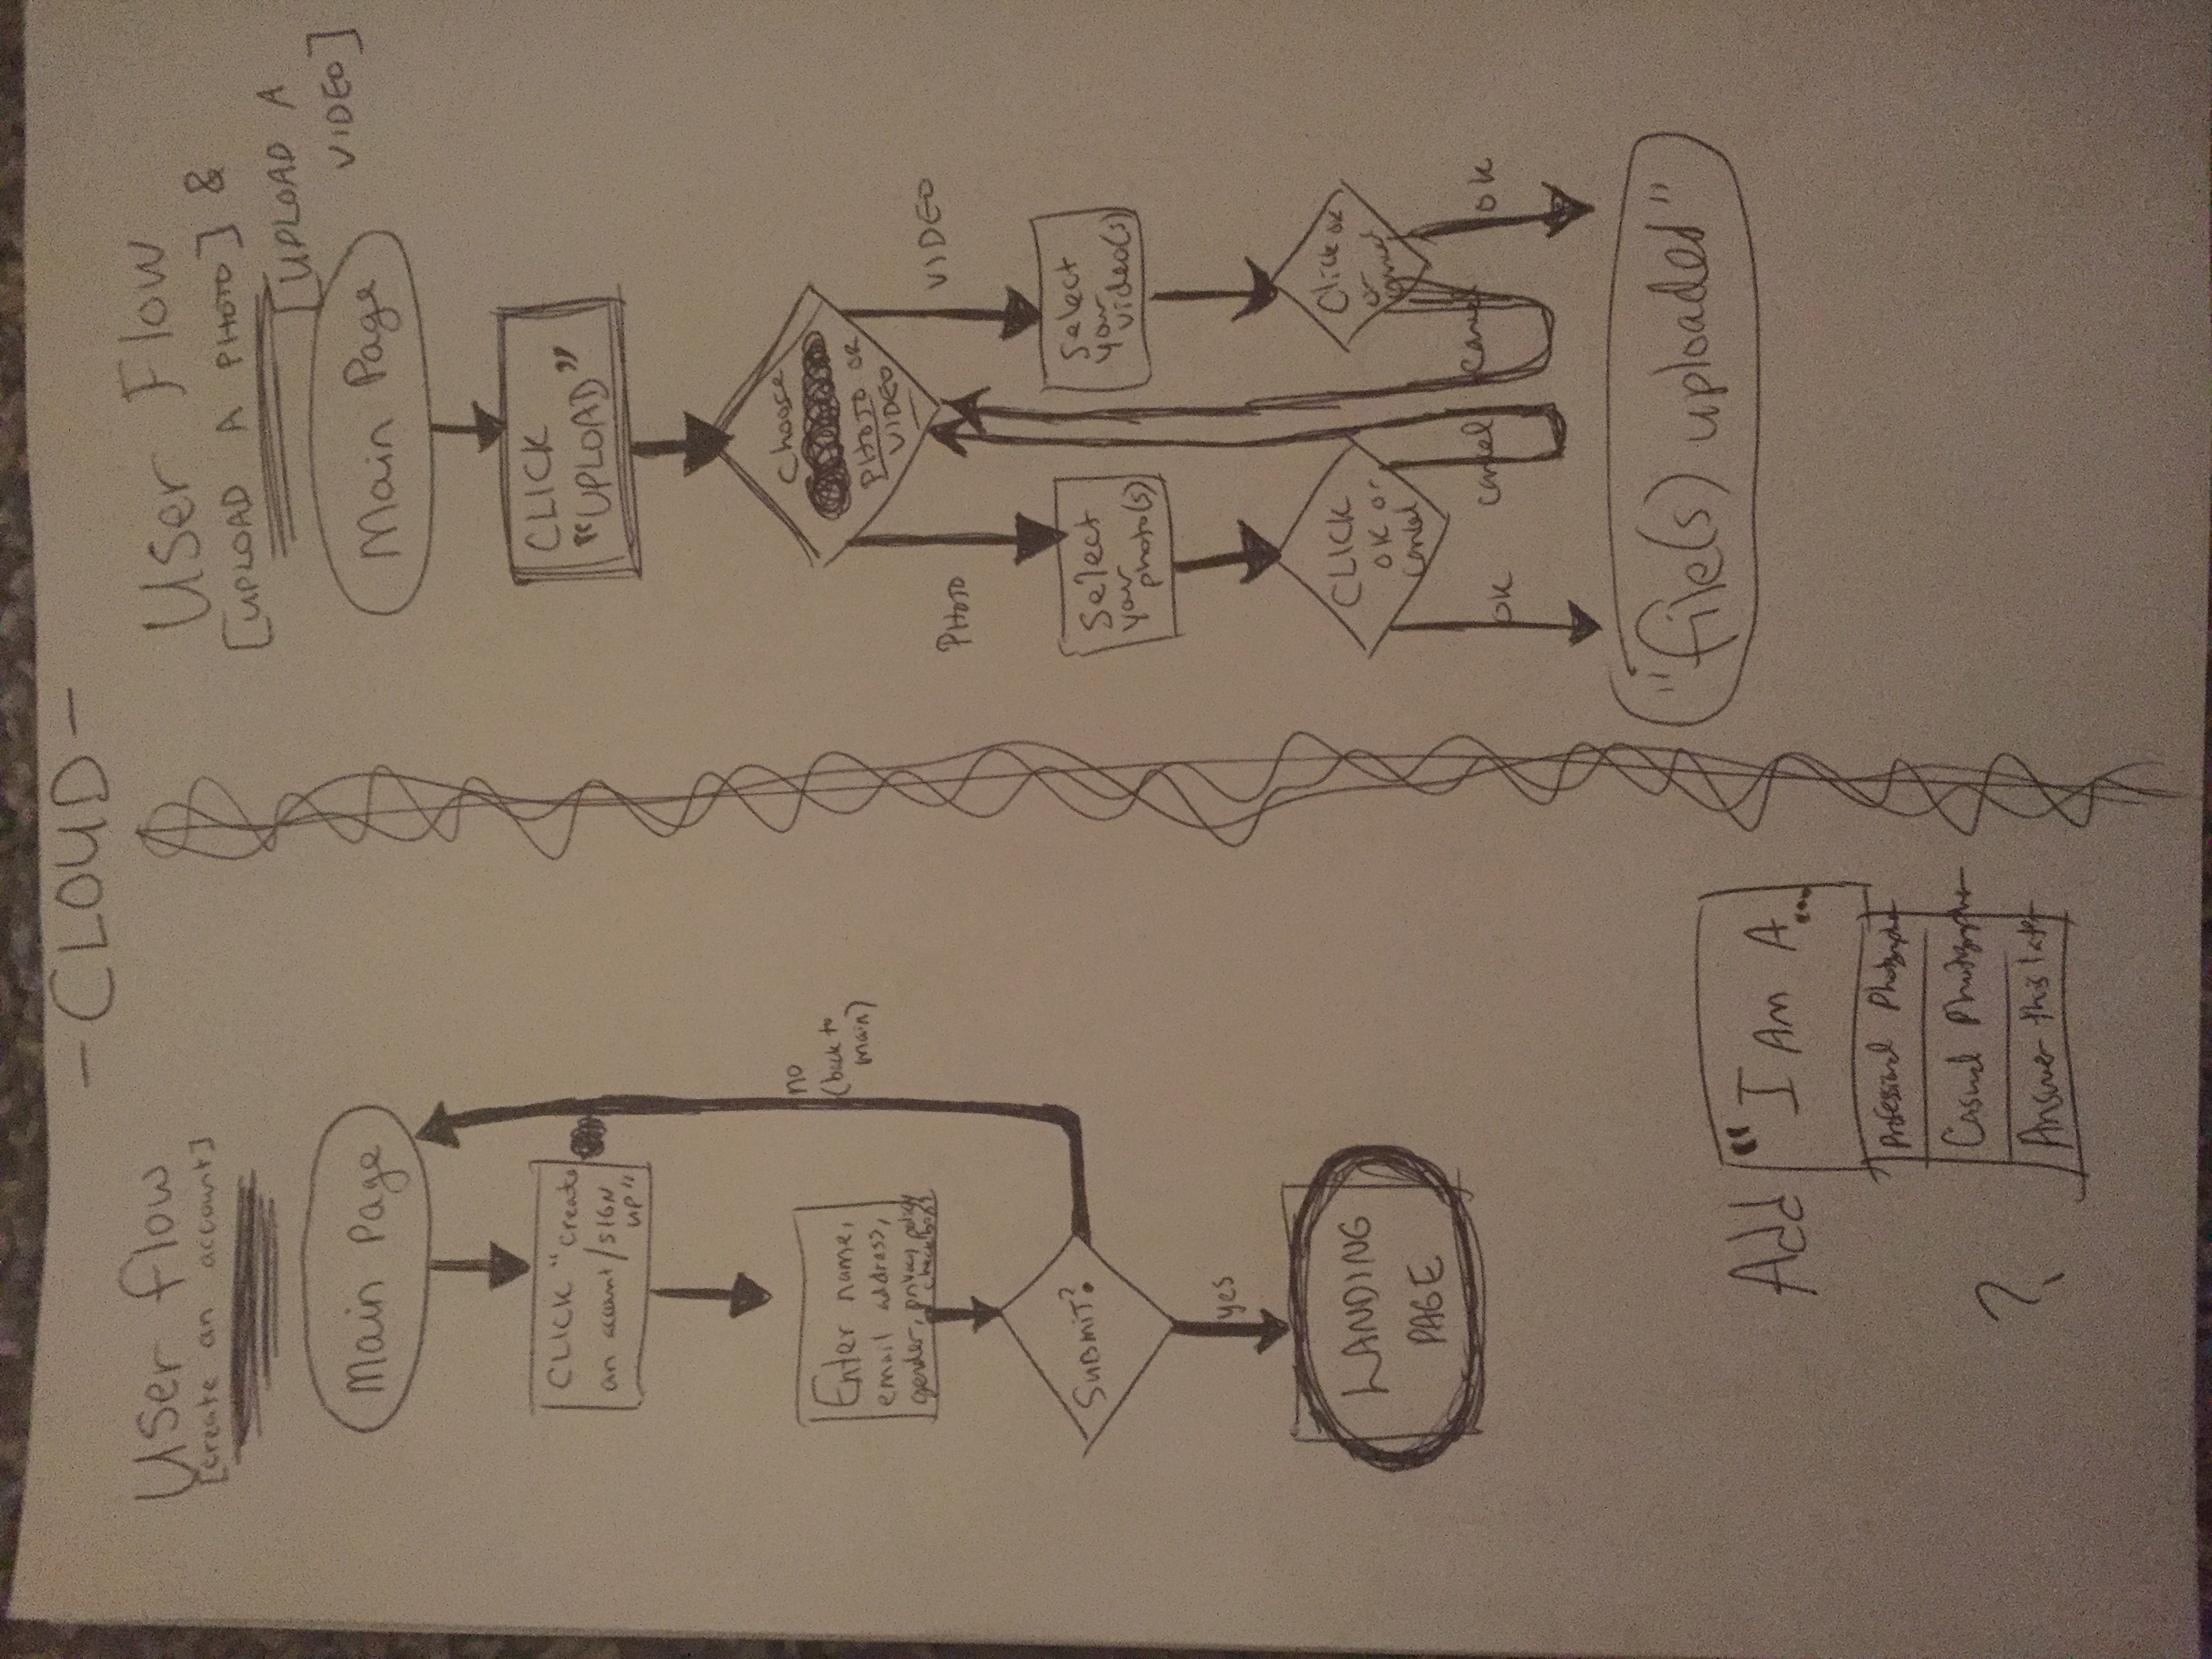 - CLOUD -
User flow
[create an account]
Main Page
CLICK "create
an account/SIGN
UP"
Enter name,
email address,
gender, privacy policy
checkbox
SUBMIT?
no
(back to
main)
yes
LANDING
PAGE
Add
"I AM A...
Professional Photographer
Casual Photographer
Answer this later
?
User Flow
[UPLOAD A PHOTO] &
[UPLOAD A
VIDEO]
Main Page
CLICK
"UPLOAD"
Choose
PHOTO OR
VIDEO
PHOTO
VIDEO
Select
your
photo(s)
Select
your
video(s)
CLICK
OK or
cancel
Click OK
or
cancel
OK
cancel
cancel
OK
"file(s) uploaded"